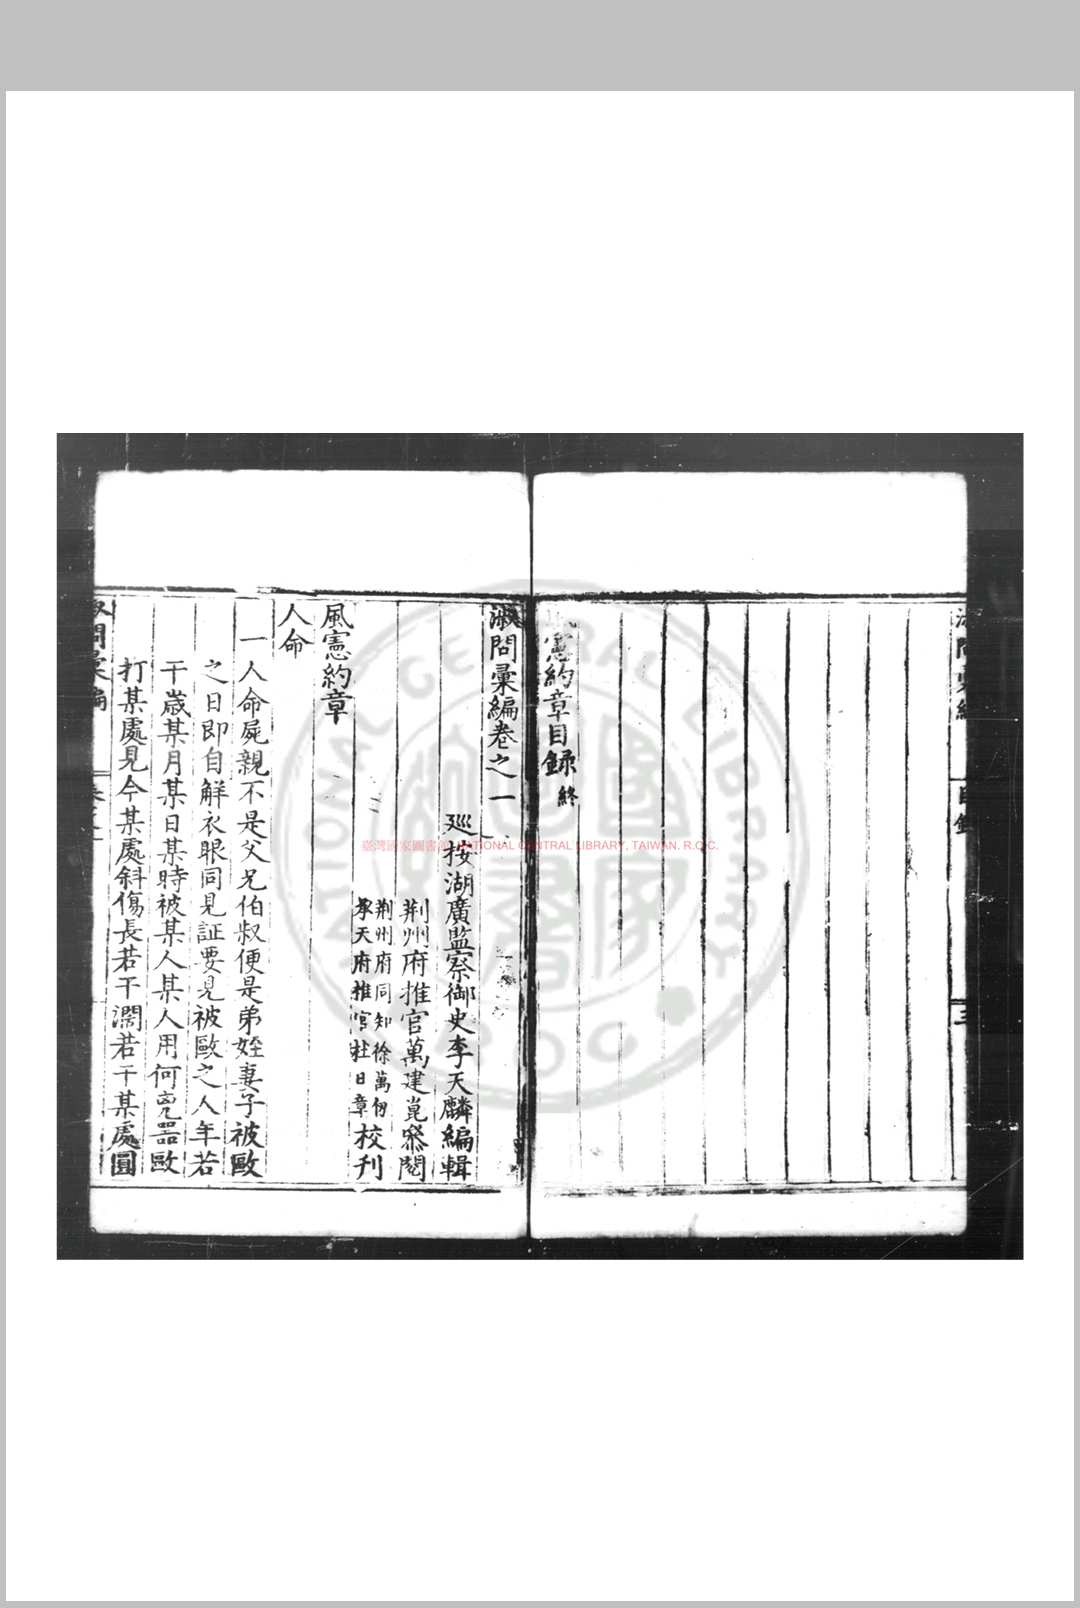 風憲約章目録終
淑問彙編卷之一
廵按湖廣監察御史李天麟編輯
荆州府推官萬建崑叅閱
荆州府同知徐萬仞
承天府推官杜日章校刊
風憲約章
人命
一人命屍親不是父兄伯叔便是弟姪妻子被毆
之日即自解衣眼同見証要見被毆之人年若
干歲某月某日某時被某人某人用何兇器毆
打某處見今某處斜傷長若干濶若干某處圓
臺灣國家圖書館, NATIONAL CENTRAL LIBRARY, TAIWAN, R.O.C.